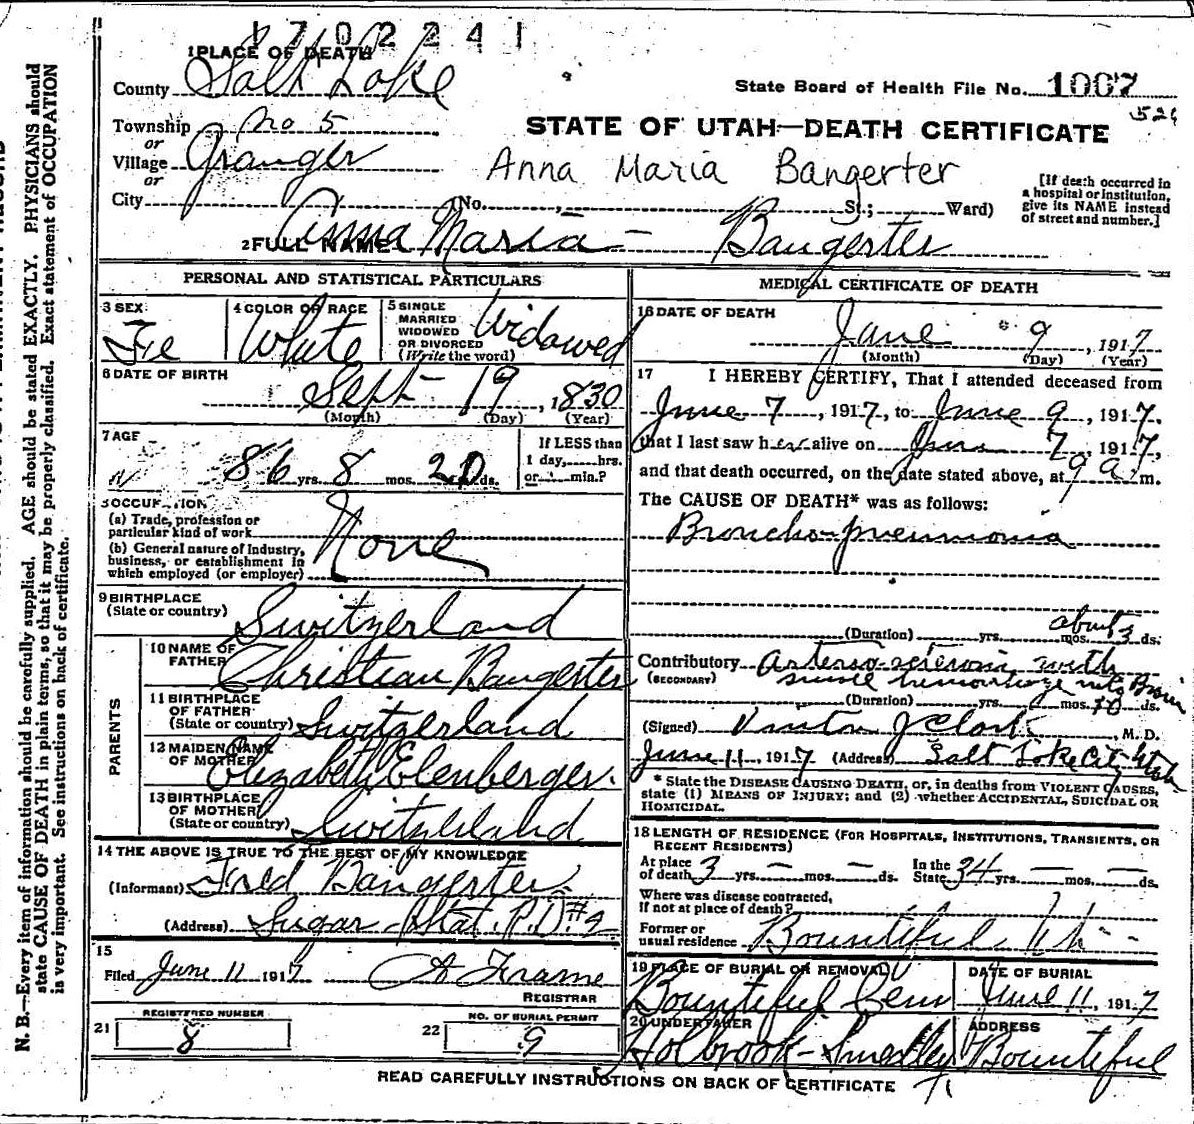 1702241
1 PLACE OF DEATH
County Salt Lake
State Board of Health File No. 1007
526
Township No 5
or
Village Granger
or
City (No. , St.; Ward)
STATE OF UTAH—DEATH CERTIFICATE
Anna Maria Bangerter
[If death occurred in
a hospital or institution,
give its NAME instead
of street and number.]
2 FULL NAME Anna Maria - Bangerter
PERSONAL AND STATISTICAL PARTICULARS
3 SEX
Fe
4 COLOR OR RACE
White
5 SINGLE
MARRIED
WIDOWED
OR DIVORCED
(Write the word)
Widowed
6 DATE OF BIRTH
Sept - 19, 1830
(Month) (Day) (Year)
7 AGE
86 yrs. 8 mos. 20 ds.
If LESS than
1 day, hrs.
or min.?
OCCUPATION
(a) Trade, profession or
particular kind of work
(b) General nature of Industry,
business, or establishment in
which employed (or employer)
None
9 BIRTHPLACE
(State or country) Switzerland
PARENTS
10 NAME OF
FATHER Christian Bangerter
11 BIRTHPLACE
OF FATHER
(State or country) Switzerland
12 MAIDEN NAME
OF MOTHER Elizabeth Elenberger.
13 BIRTHPLACE
OF MOTHER
(State or country) Switzerland
14 THE ABOVE IS TRUE TO THE BEST OF MY KNOWLEDGE
(Informant) Fred Bangerter
(Address) Sugar - Stat. R.D. #
15
Filed June 11 1917 Frame
REGISTRAR
REGISTERED NUMBER
21 8
NO. OF BURIAL PERMIT
22 9
MEDICAL CERTIFICATE OF DEATH
16 DATE OF DEATH
June 9, 1917
(Month) (Day) (Year)
17 I HEREBY CERTIFY, That I attended deceased from
June 7, 1917, to June 9, 1917.
that I last saw her alive on June 7, 1917,
and that death occurred, on the date stated above, at 9 a. m.
The CAUSE OF DEATH* was as follows:
Broncho-pneumonia
(Duration) yrs. mos. about 3 ds.
Contributory with
(SECONDARY) hemorrhage into Brain
(Duration) yrs. mos. 10 ds.
(Signed) J Clark, M. D.
June 11, 1917 (Address) Salt Lake City Utah
* State the DISEASE CAUSING DEATH, or, in deaths from VIOLENT CAUSES,
state (1) MEANS OF INJURY; and (2) whether ACCIDENTAL, SUICIDAL OR
HOMICIDAL.
18 LENGTH OF RESIDENCE (FOR HOSPITALS, INSTITUTIONS, TRANSIENTS, OR
RECENT RESIDENTS)
At place
of death 3 yrs. — mos. — ds.
In the
State 34 yrs. — mos. — ds.
Where was disease contracted,
If not at place of death?
Former or
usual residence Bountiful
19 PLACE OF BURIAL OR REMOVAL
Bountiful Cem
DATE OF BURIAL
June 11, 1917
20 UNDERTAKER
Holbrook-Smedley
ADDRESS
Bountiful
READ CAREFULLY INSTRUCTIONS ON BACK OF CERTIFICATE
N. B.—Every item of information should be carefully supplied. AGE should be stated EXACTLY. PHYSICIANS should
state CAUSE OF DEATH in plain terms, so that it may be properly classified. Exact statement of OCCUPATION
is very important. See instructions on back of certificate.